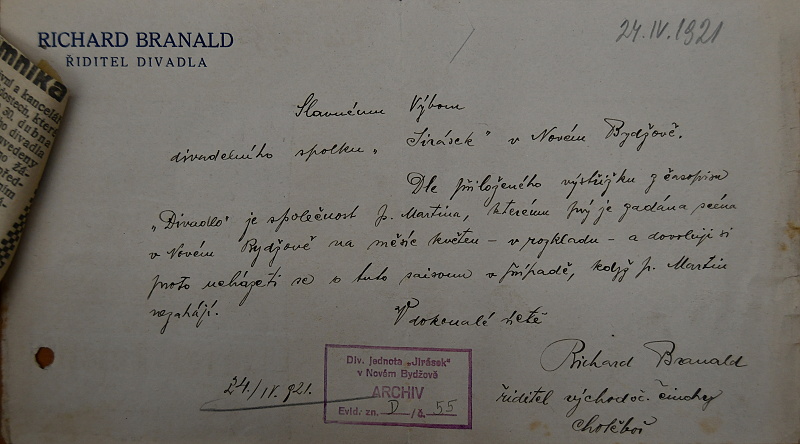 RICHARD BRANALD
ŘIDITEL DIVADLA
24.IV.1921
mnika
Slavnému Výboru
divadelního spolku „Jirásek" v Novém Bydžově.
Dle přiloženého výstřižku z časopisu
„Divadlo" je společnost p. Martina, kterému prý je zadána scéna
v Novém Bydžově na měsíc květen – v rozkladu – a dovoluji si
proto ucházeti se o tuto saisonu v případě, když p. Martin
nezahájí.
V dokonalé úctě
24./IV.921.
Richard Branald
ředitel východoč. činohry
Chotěboř
Div. jednota „Jirásek"
v Novém Bydžově
ARCHIV
Evid. zn. D /č. 55